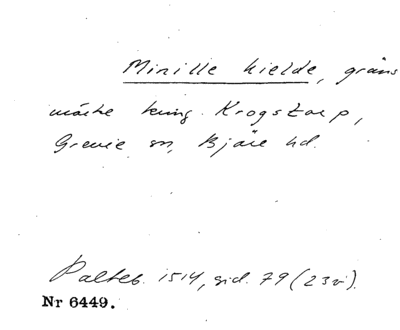 Minille kielde, gräns
märke kring Krogstorp,
Grevie sn, Bjäre hd.
Palteb. 1514, sid. 79 (23v).
Nr 6449.